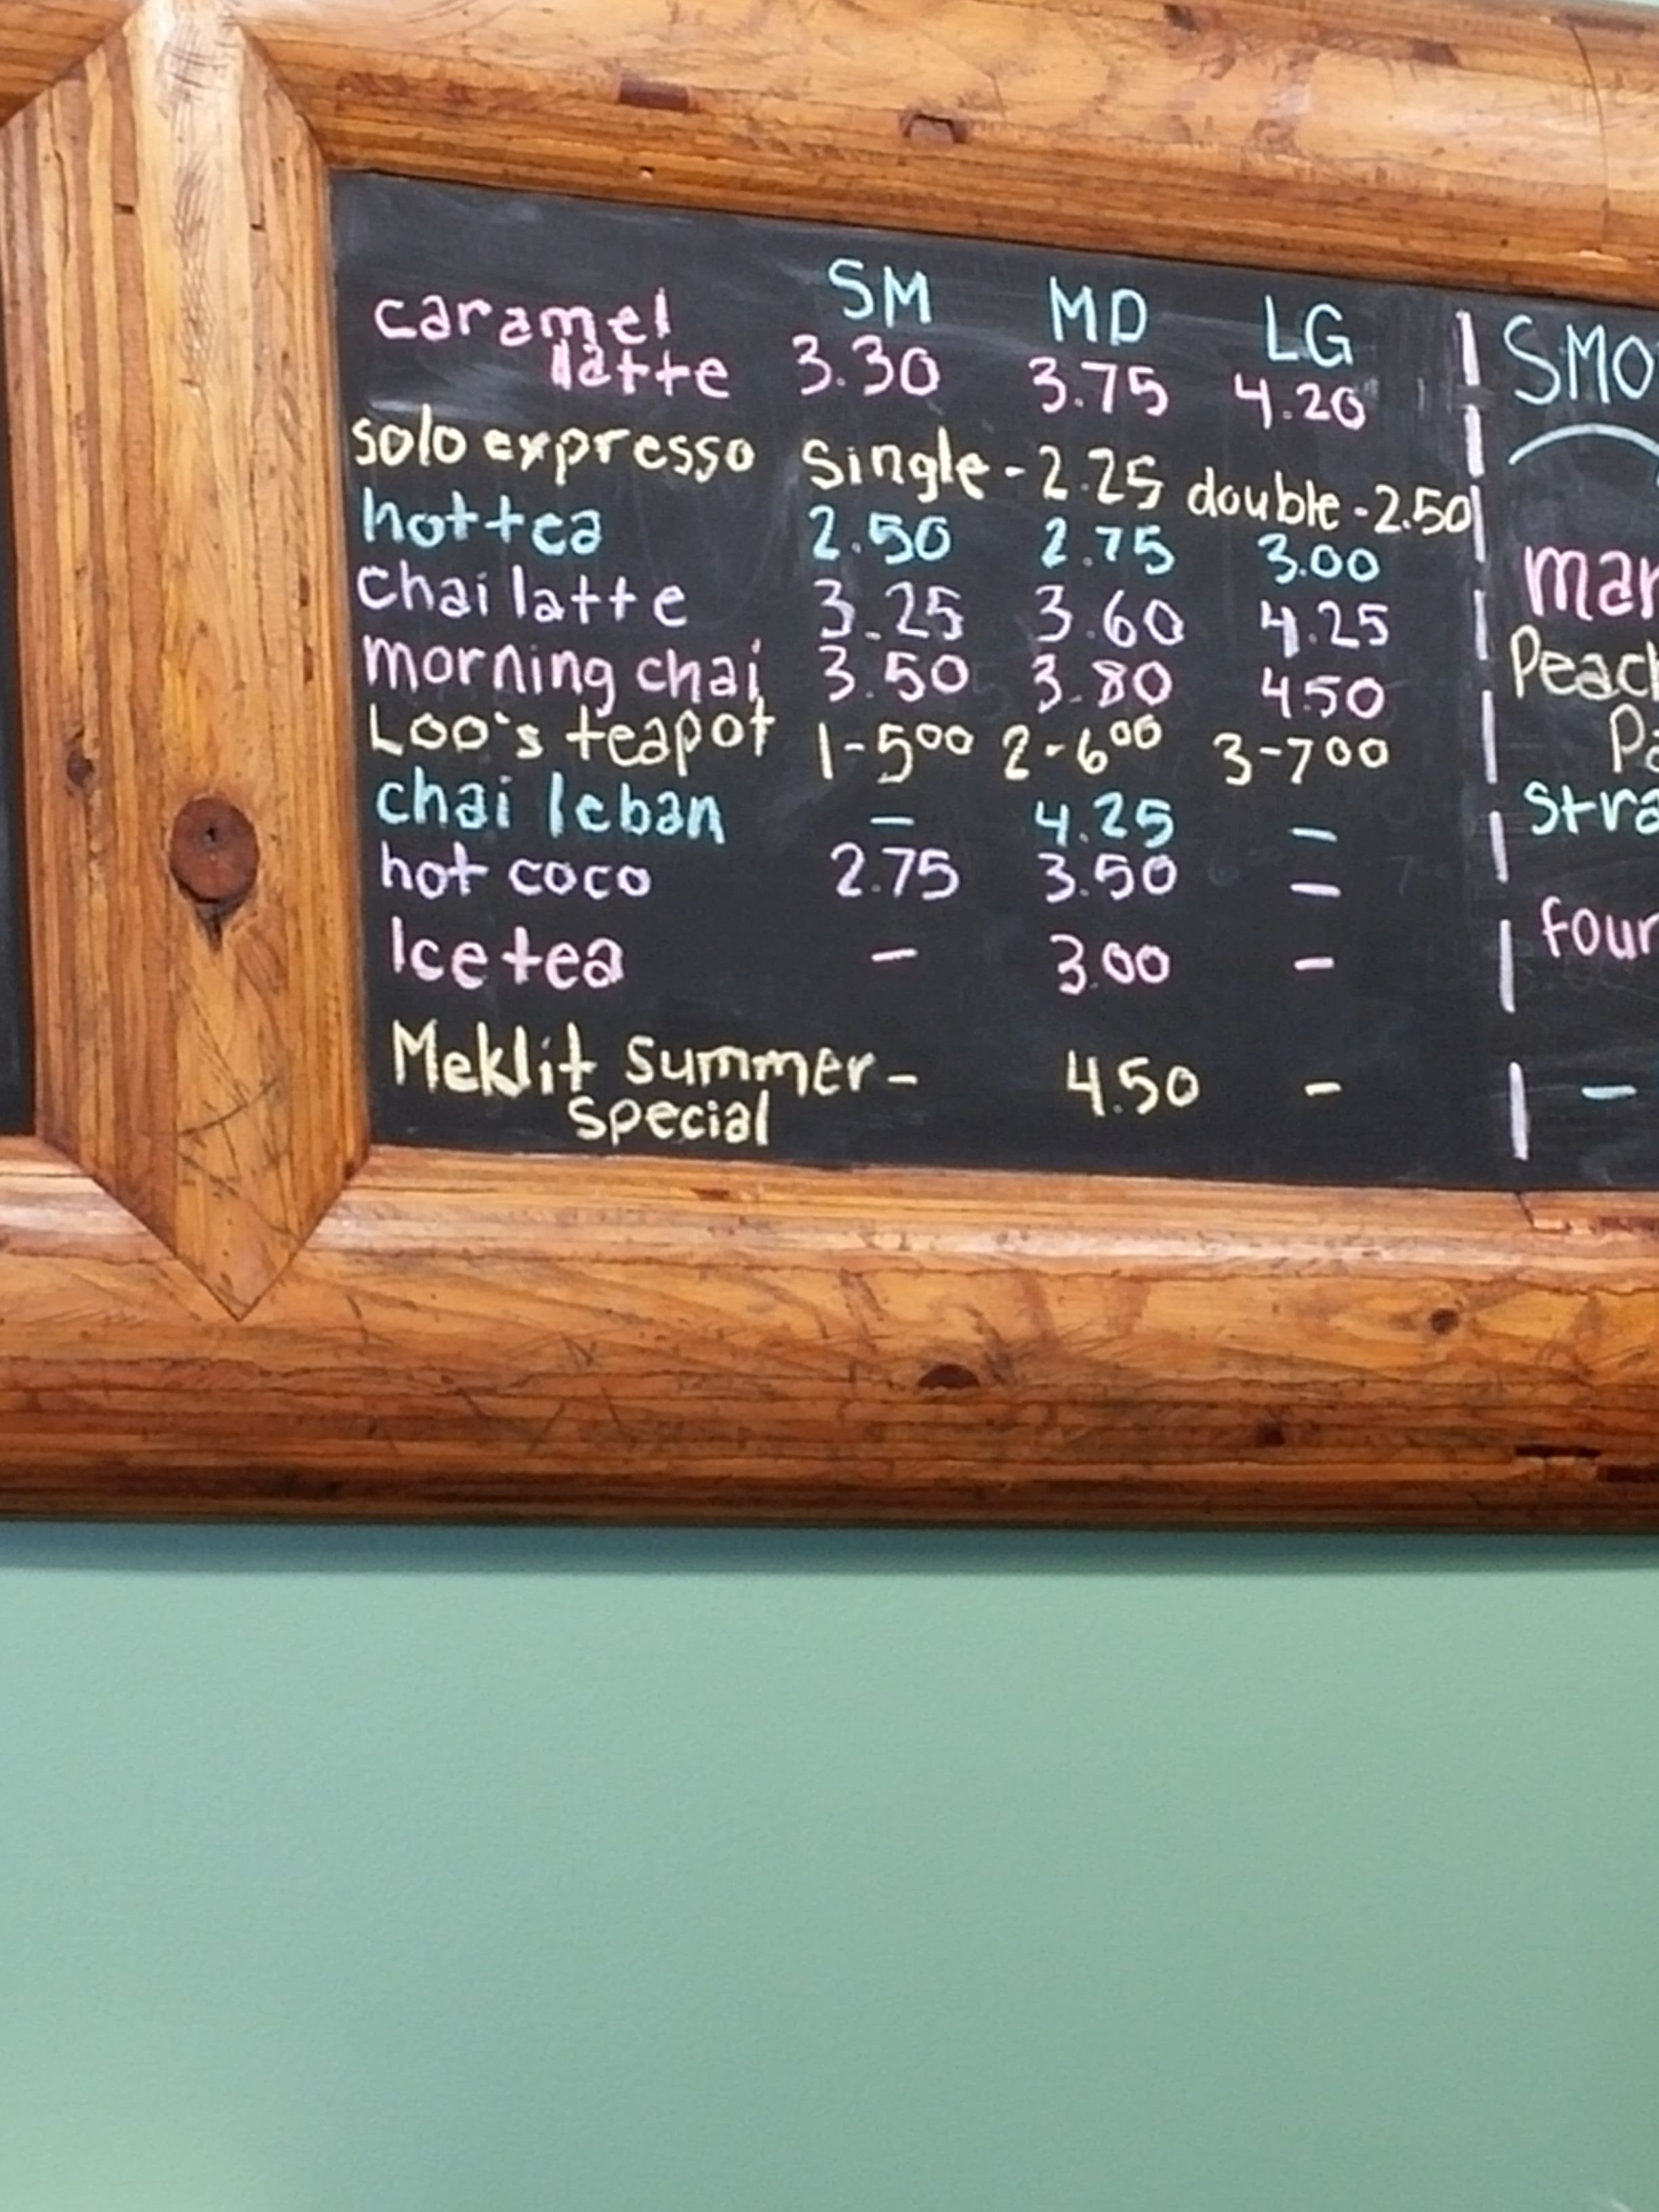 SM MD LG
caramel
latte 3.30 3.75 4.20
solo expresso single - 2.25 double - 2.50
hot tea 2.50 2.75 3.00
chai latte 3.25 3.60 4.25
morning chai 3.50 3.80 4.50
Loo's teapot 1-5⁰⁰ 2-6⁰⁰ 3-7⁰⁰
chai leban – 4.25 –
hot coco 2.75 3.50 –
Ice tea – 3.00 –
Meklit Summer – 4.50 –
special
Peach
four